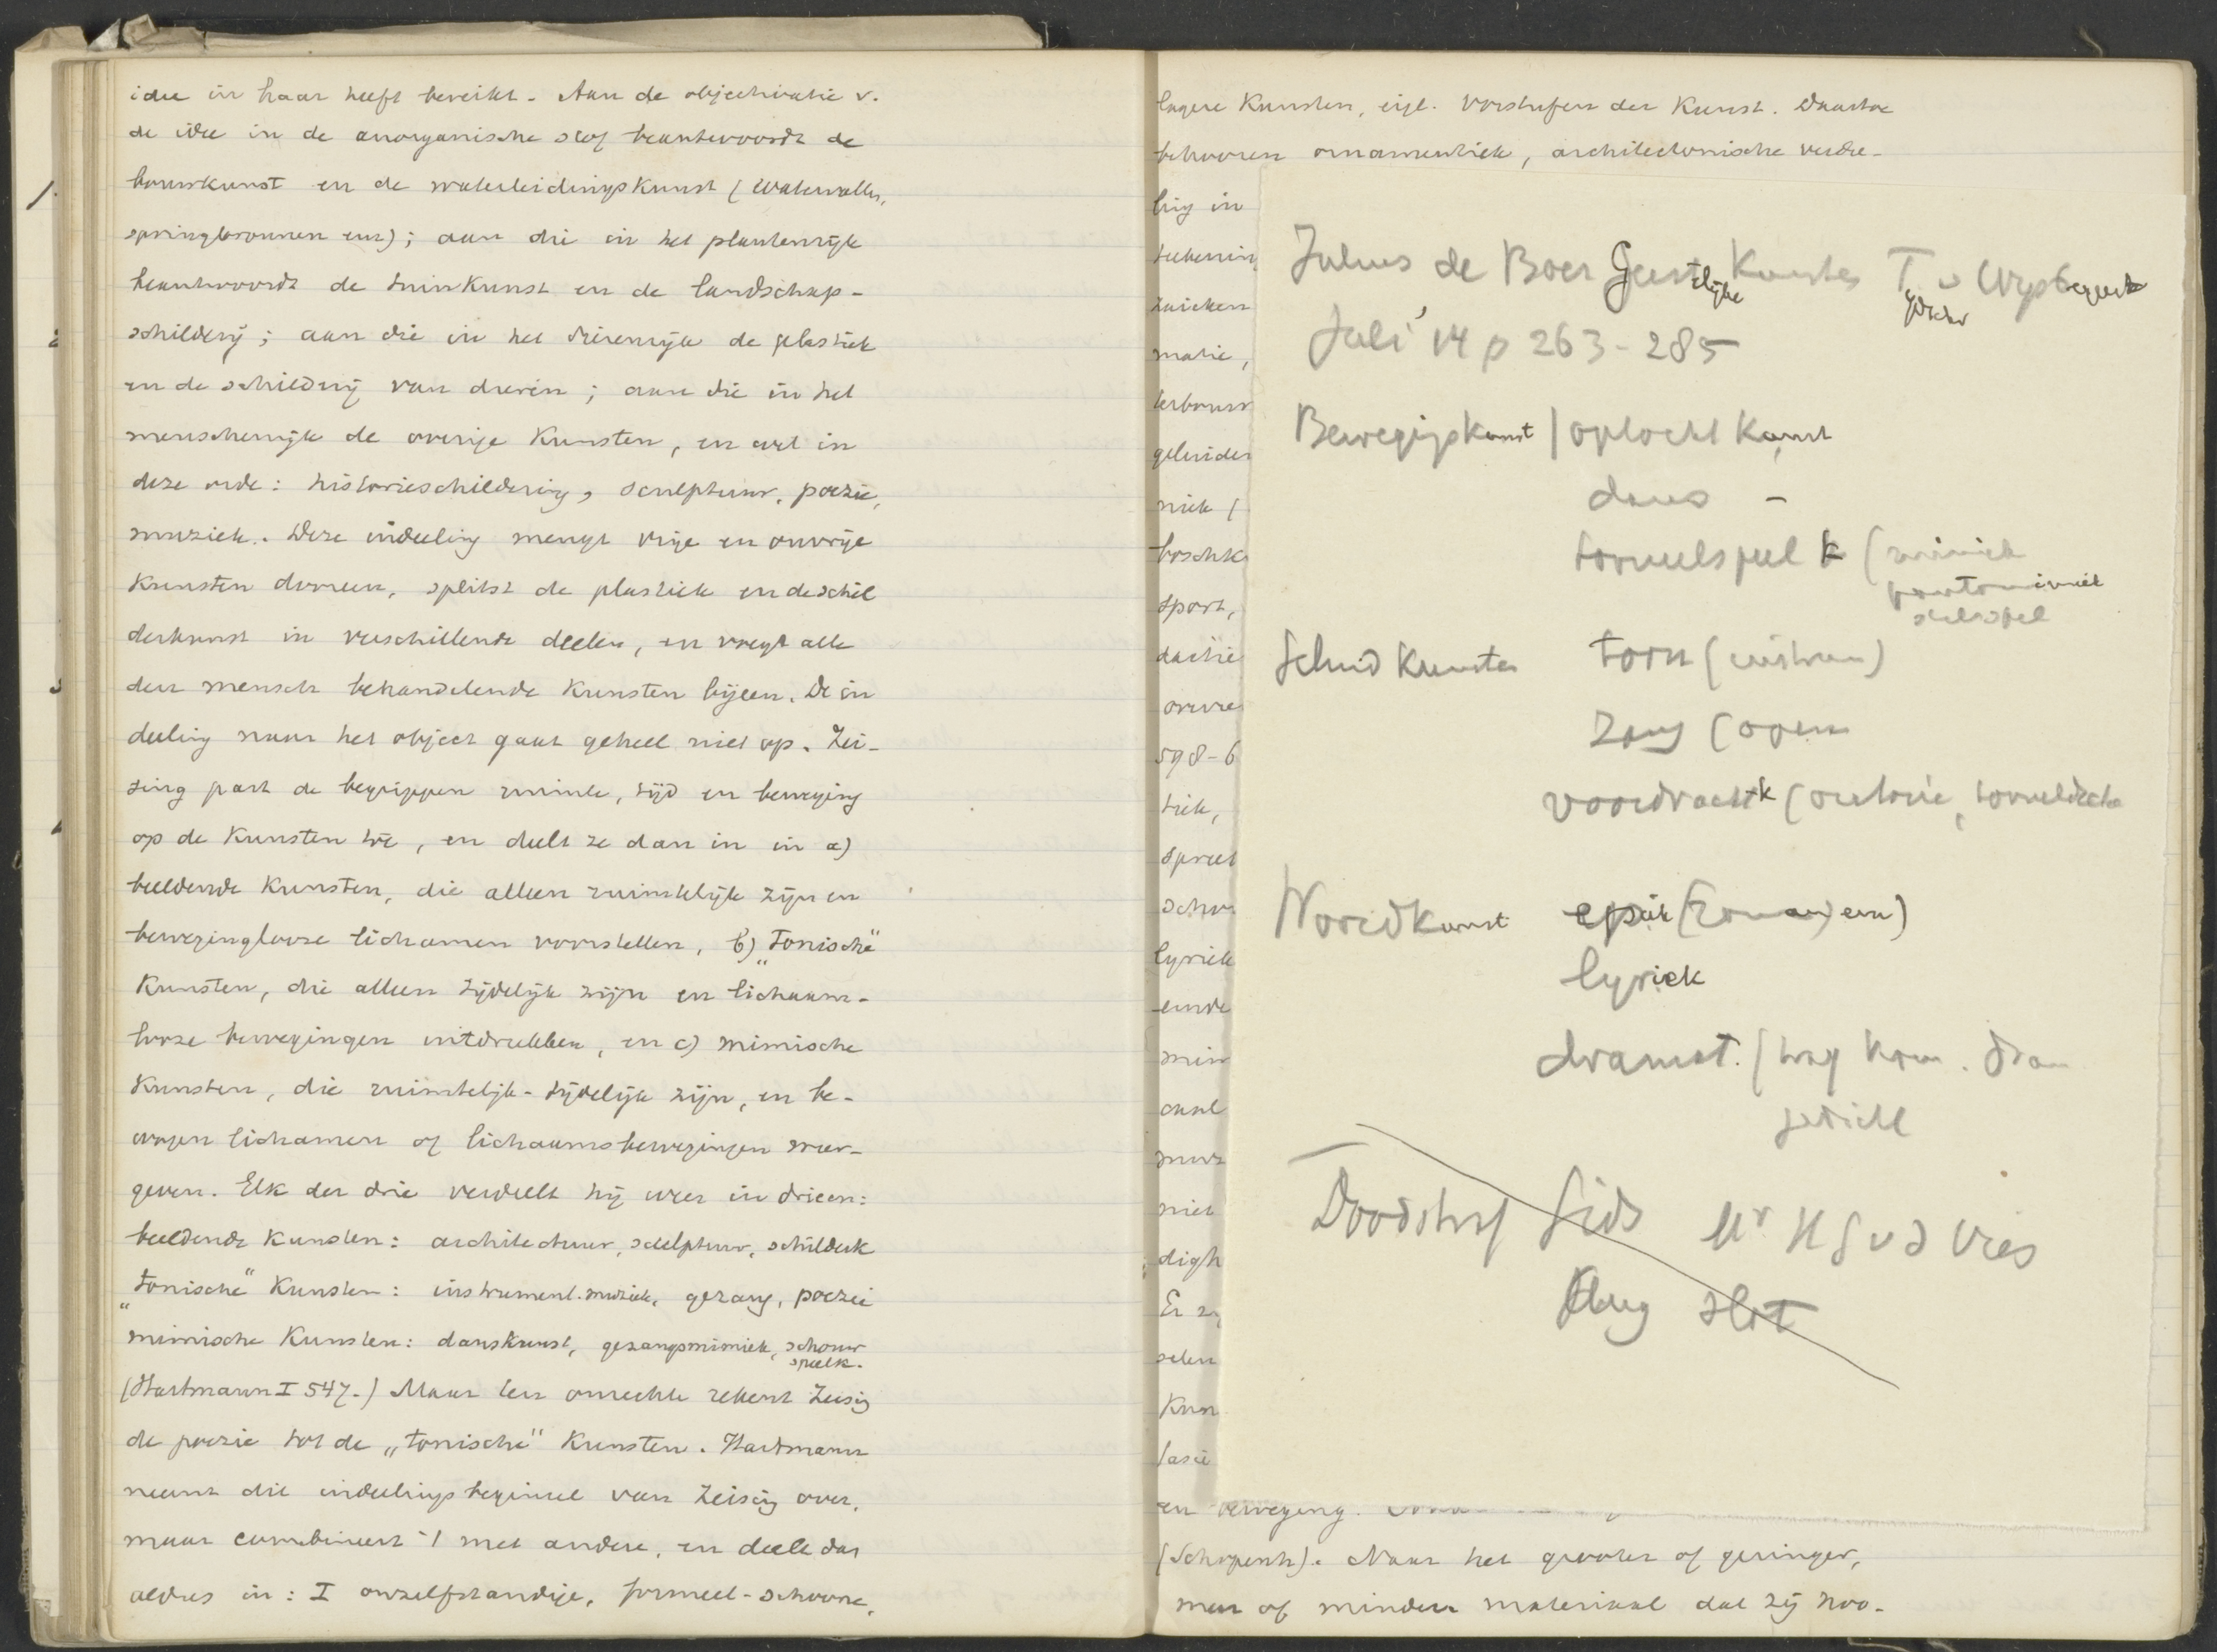 idee in haar heeft bereikt. Aan de objectivatie v.
de idee in de anorganische stof beantwoordt de
bouwkunst en de waterleidingskunst (watervallen,
springbronnen enz); aan die in het plantenrijk
beantwoordt de tuinkunst en de landschap-
schilderij; aan die in het dierenrijk de plastiek
en de schilderij van dieren; aan die in het
menschenrijk de overige kunsten, en wel in
deze orde: historieschildering, sculptuur, poezie,
muziek. Deze indeeling mengt vrije en onvrije
kunsten dooreen, splitst de plastiek en de schil
derkunst in verschillende deelen, en voegt alle
den mensch behandelende kunsten bijeen. De in
deeling naar het object gaat geheel niet op. Zei-
sing past de begrippen ruimte, tijd en beweging
op de kunsten toe, en deelt ze dan in in a)
beeldende kunsten, die alleen ruimtelijk zijn en
bewegingloose lichamen voorstellen, b) „tonische"
kunsten, die alleen tijdelijk zijn en lichaam-
looze bewegingen uitdrukken, en c) mimische
kunsten, die ruimtelijk-tijdelijk zijn, en be-
wogen lichamen of lichaamsbewegingen weer-
geven. Elk der drie verdeelt hij weer in drieen:
beeldende kunsten: architectuur, sculptuur, schilderk
„tonische" kunsten: instrument. muziek, gezang, poezie
mimische kunsten: danskunst, gezangsmimiek, schouw
speelk.
(Hartmann I 547.) Maar ten onrechte rekent Zeising
de poezie tot de „tonische" kunsten. Hartmann
neemt dit indeelingsbeginsel van Zeising over,
maar combineert 't met andere, en deelt dan
aldus in: I onzelfstandige, formeel-schoone,
lagere kunsten, eigl. Vorstufen der Kunst. Daartoe
behooren ornamentiek, architectonische versie-
ring in
teekenin
matie,
geluiden
niek (
sport,
598-6
tiek,
lyriek
einde
mim
muz
niet
digh
Er zij
Kun
en beweging.
(Schopenh). Naar het grooter of geringer,
meer of minder materiaal dat zij noo-
Julius de Boer Geestelijke Kunsten T v Wijsbegeerte
Juli '14 p 263-285
Bewegingskunst / optocht kunst
dans -
tooneelspel k (mimiek
pantomimiek
Geluid kunsten toon (instrum)
zang (opera
voordracht k (oratorie,
Woordkunst epiek (roman) enz)
lyriek
dramat. / trag kom. dram
Doodstraf Gids Mr H G v d Vries
Aug slot